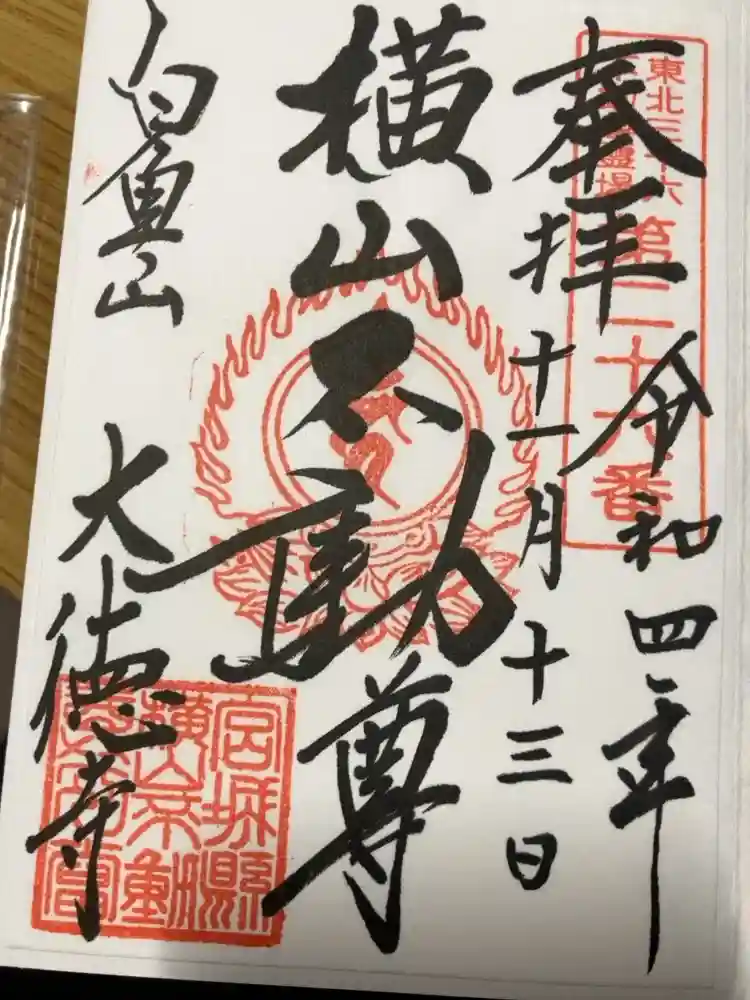 奉拝
令和四年
十一月十三日
東北三十六
不動尊霊場
第二十六番
横山不動尊
白魚山
大徳寺
宮城縣
横山不動